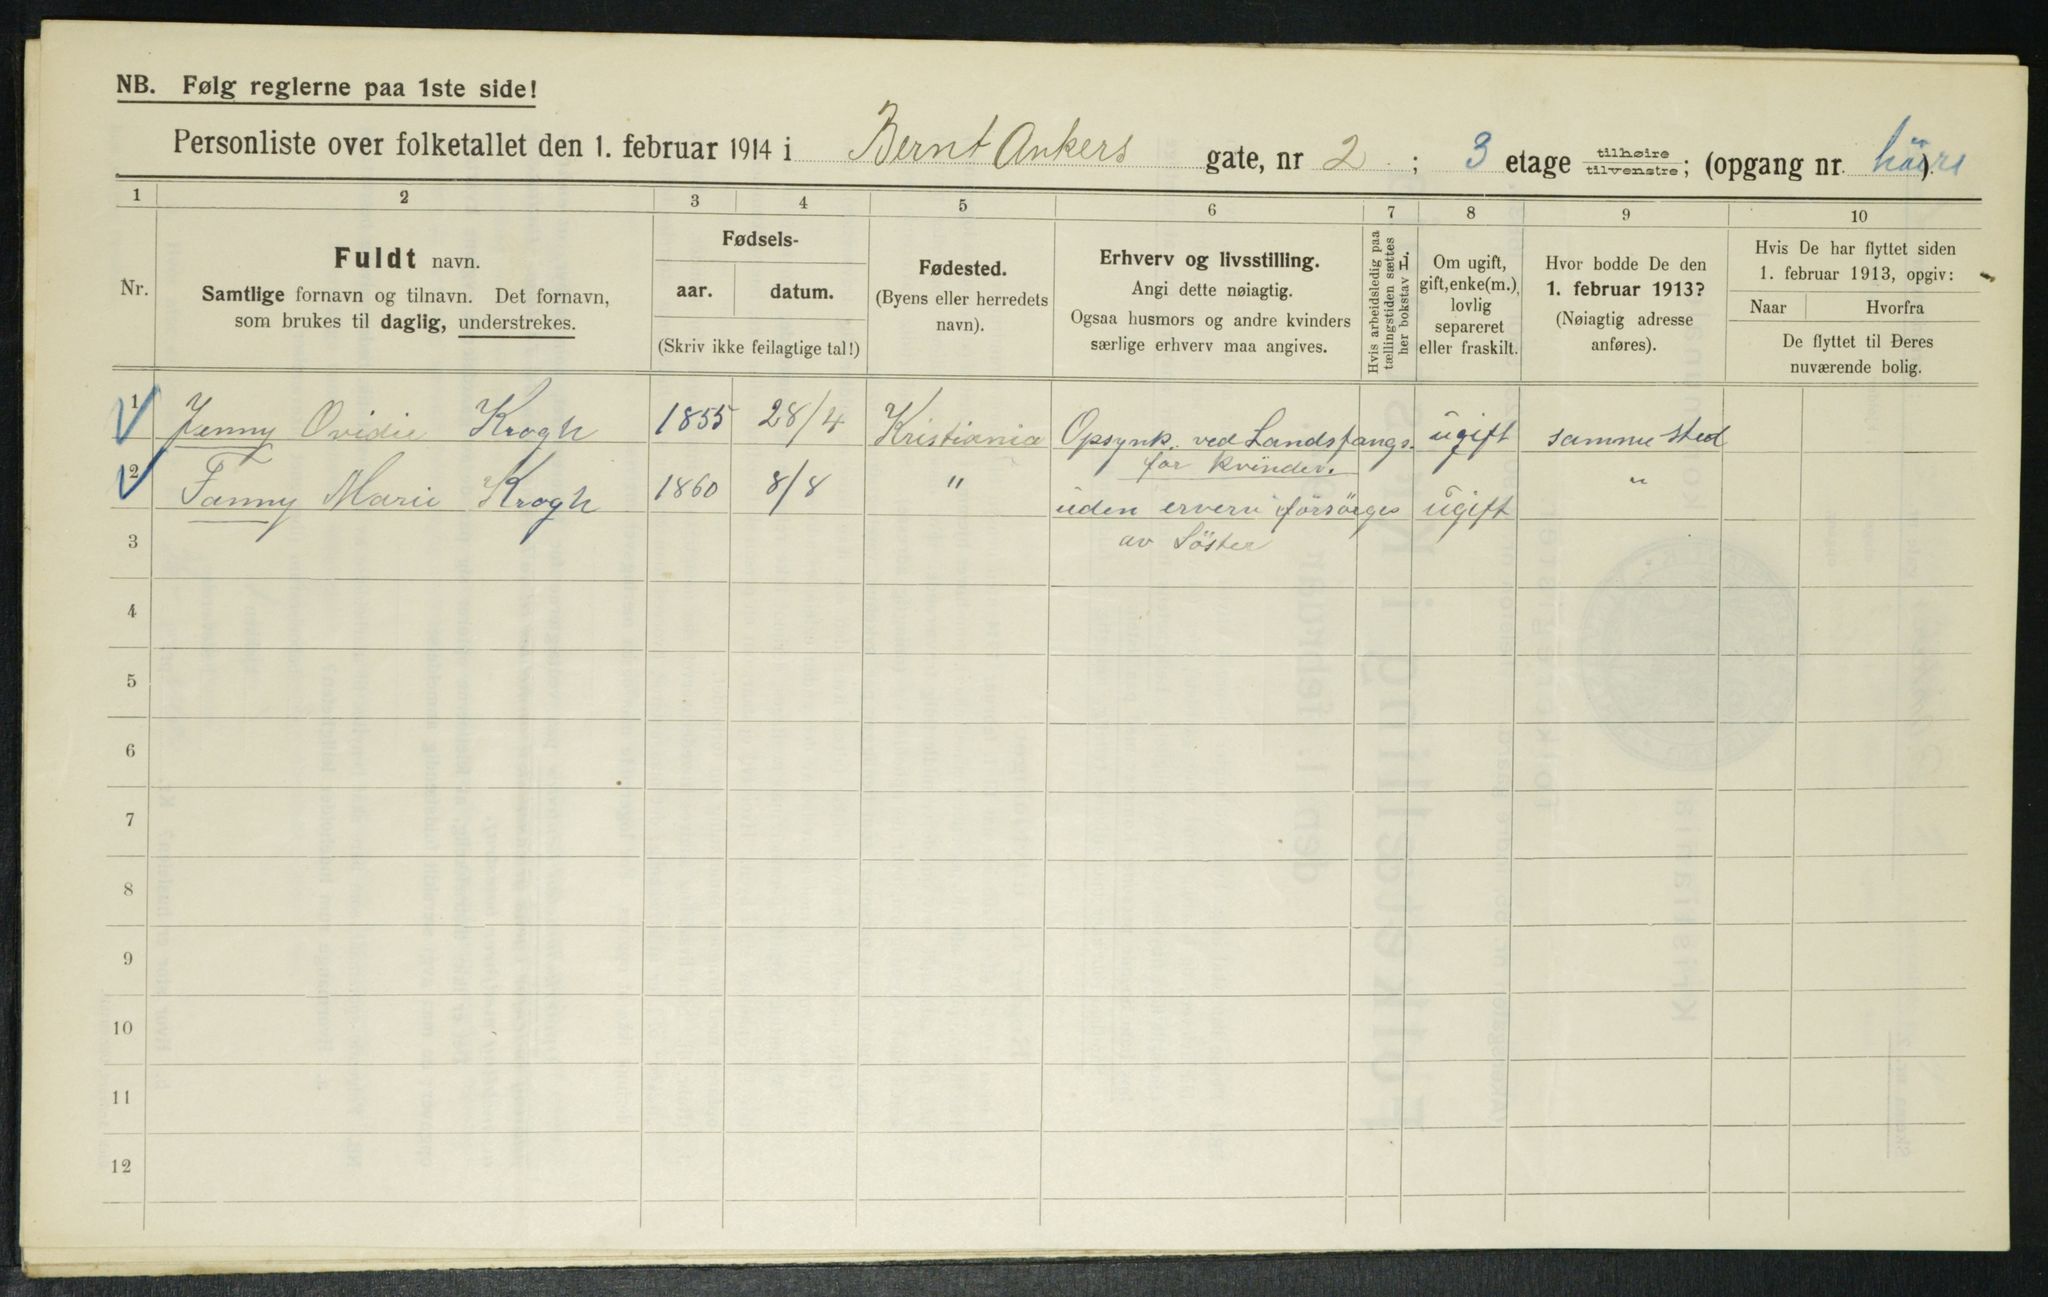 NB. Følg reglerne paa 1ste side!
Personliste over folketallet den 1. februar 1914 i Bernt Ankers gate, nr 2 ; 3 etage tilhøire tilvenstre; (opgang nr. ).
1 2 3 4 5 6 7 8 9 10
Nr.
Fuldt navn.
Samtlige fornavn og tilnavn. Det fornavn,
som brukes til daglig, understrekes.
Fødsels-
aar. datum.
(Skriv ikke feilagtige tal!)
Fødested.
(Byens eller herredets
navn).
Erhverv og livsstilling.
Angi dette nøiagtig.
Ogsaa husmors og andre kvinders
særlige erhverv maa angives.
Hvis arbeidsledig paa
tællingstiden sættes
her bokstav L.
Om ugift,
gift, enke(m.),
lovlig
separeret
eller fraskilt.
Hvor bodde De den
1. februar 1913?
(Nøiagtig adresse
anføres).
Hvis De har flyttet siden
1. februar 1913, opgiv:
Naar Hvorfra
De flyttet til Deres
nuværende bolig.
1 Jenny Ovidie Krogh 1855 28/4 Kristiania Opsynk. ved Landsfangs. ugift samme sted
for kvinder.
2 Fanny Marie Krogh 1860 8/8 " uden erverv forsörges ugift "
av Söster
3
4
5
6
7
8
9
10
11
12